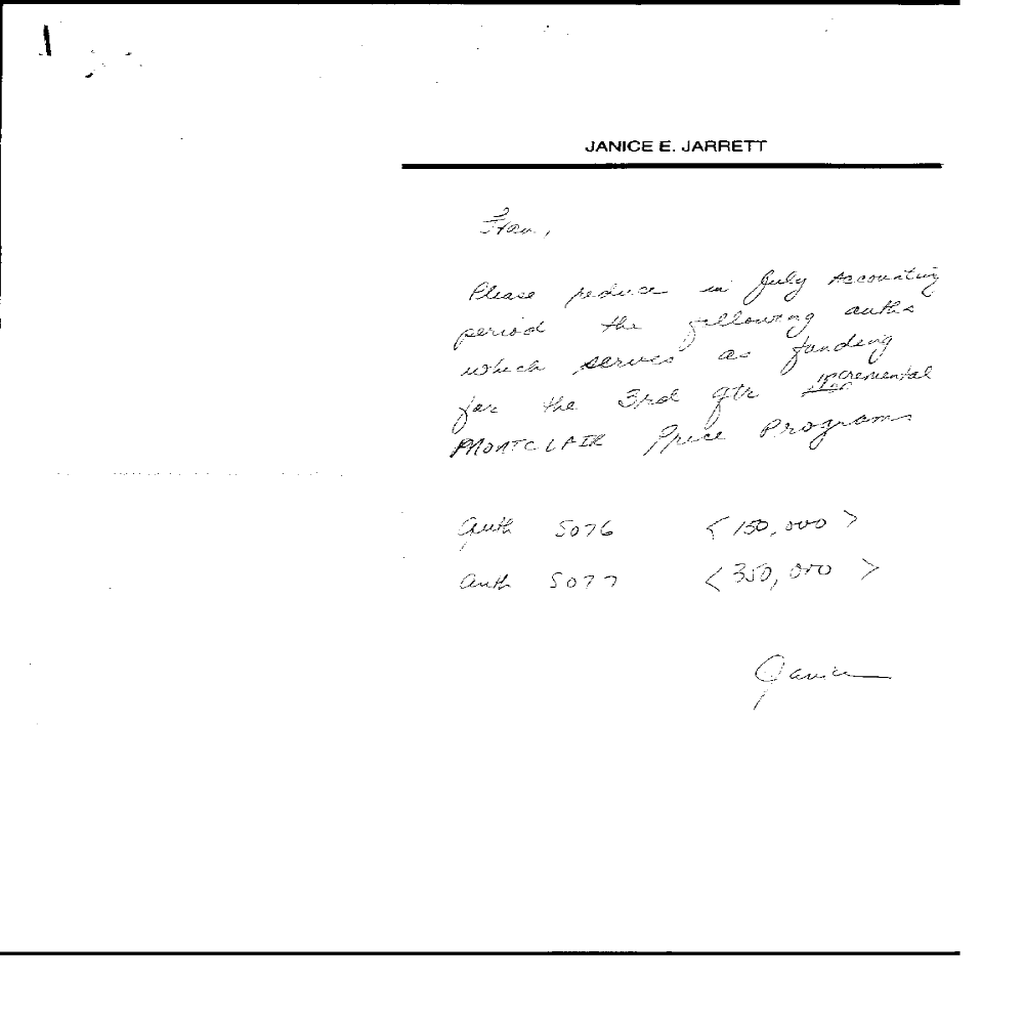 JANICE E. JARRETT
Fran,
Please reduce in July Accounting
period the following auths
which serves as funding
for the 3rd qtr incremental
MONTCLAIR Price Programs
Auth 5076 < 150,000 >
Auth 5077 < 350,000 >
Janice